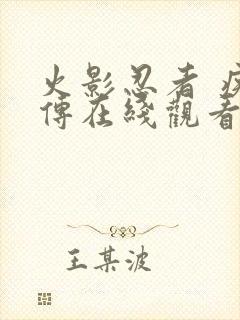 火影忍者 疾
傳在綫觀看
王某波